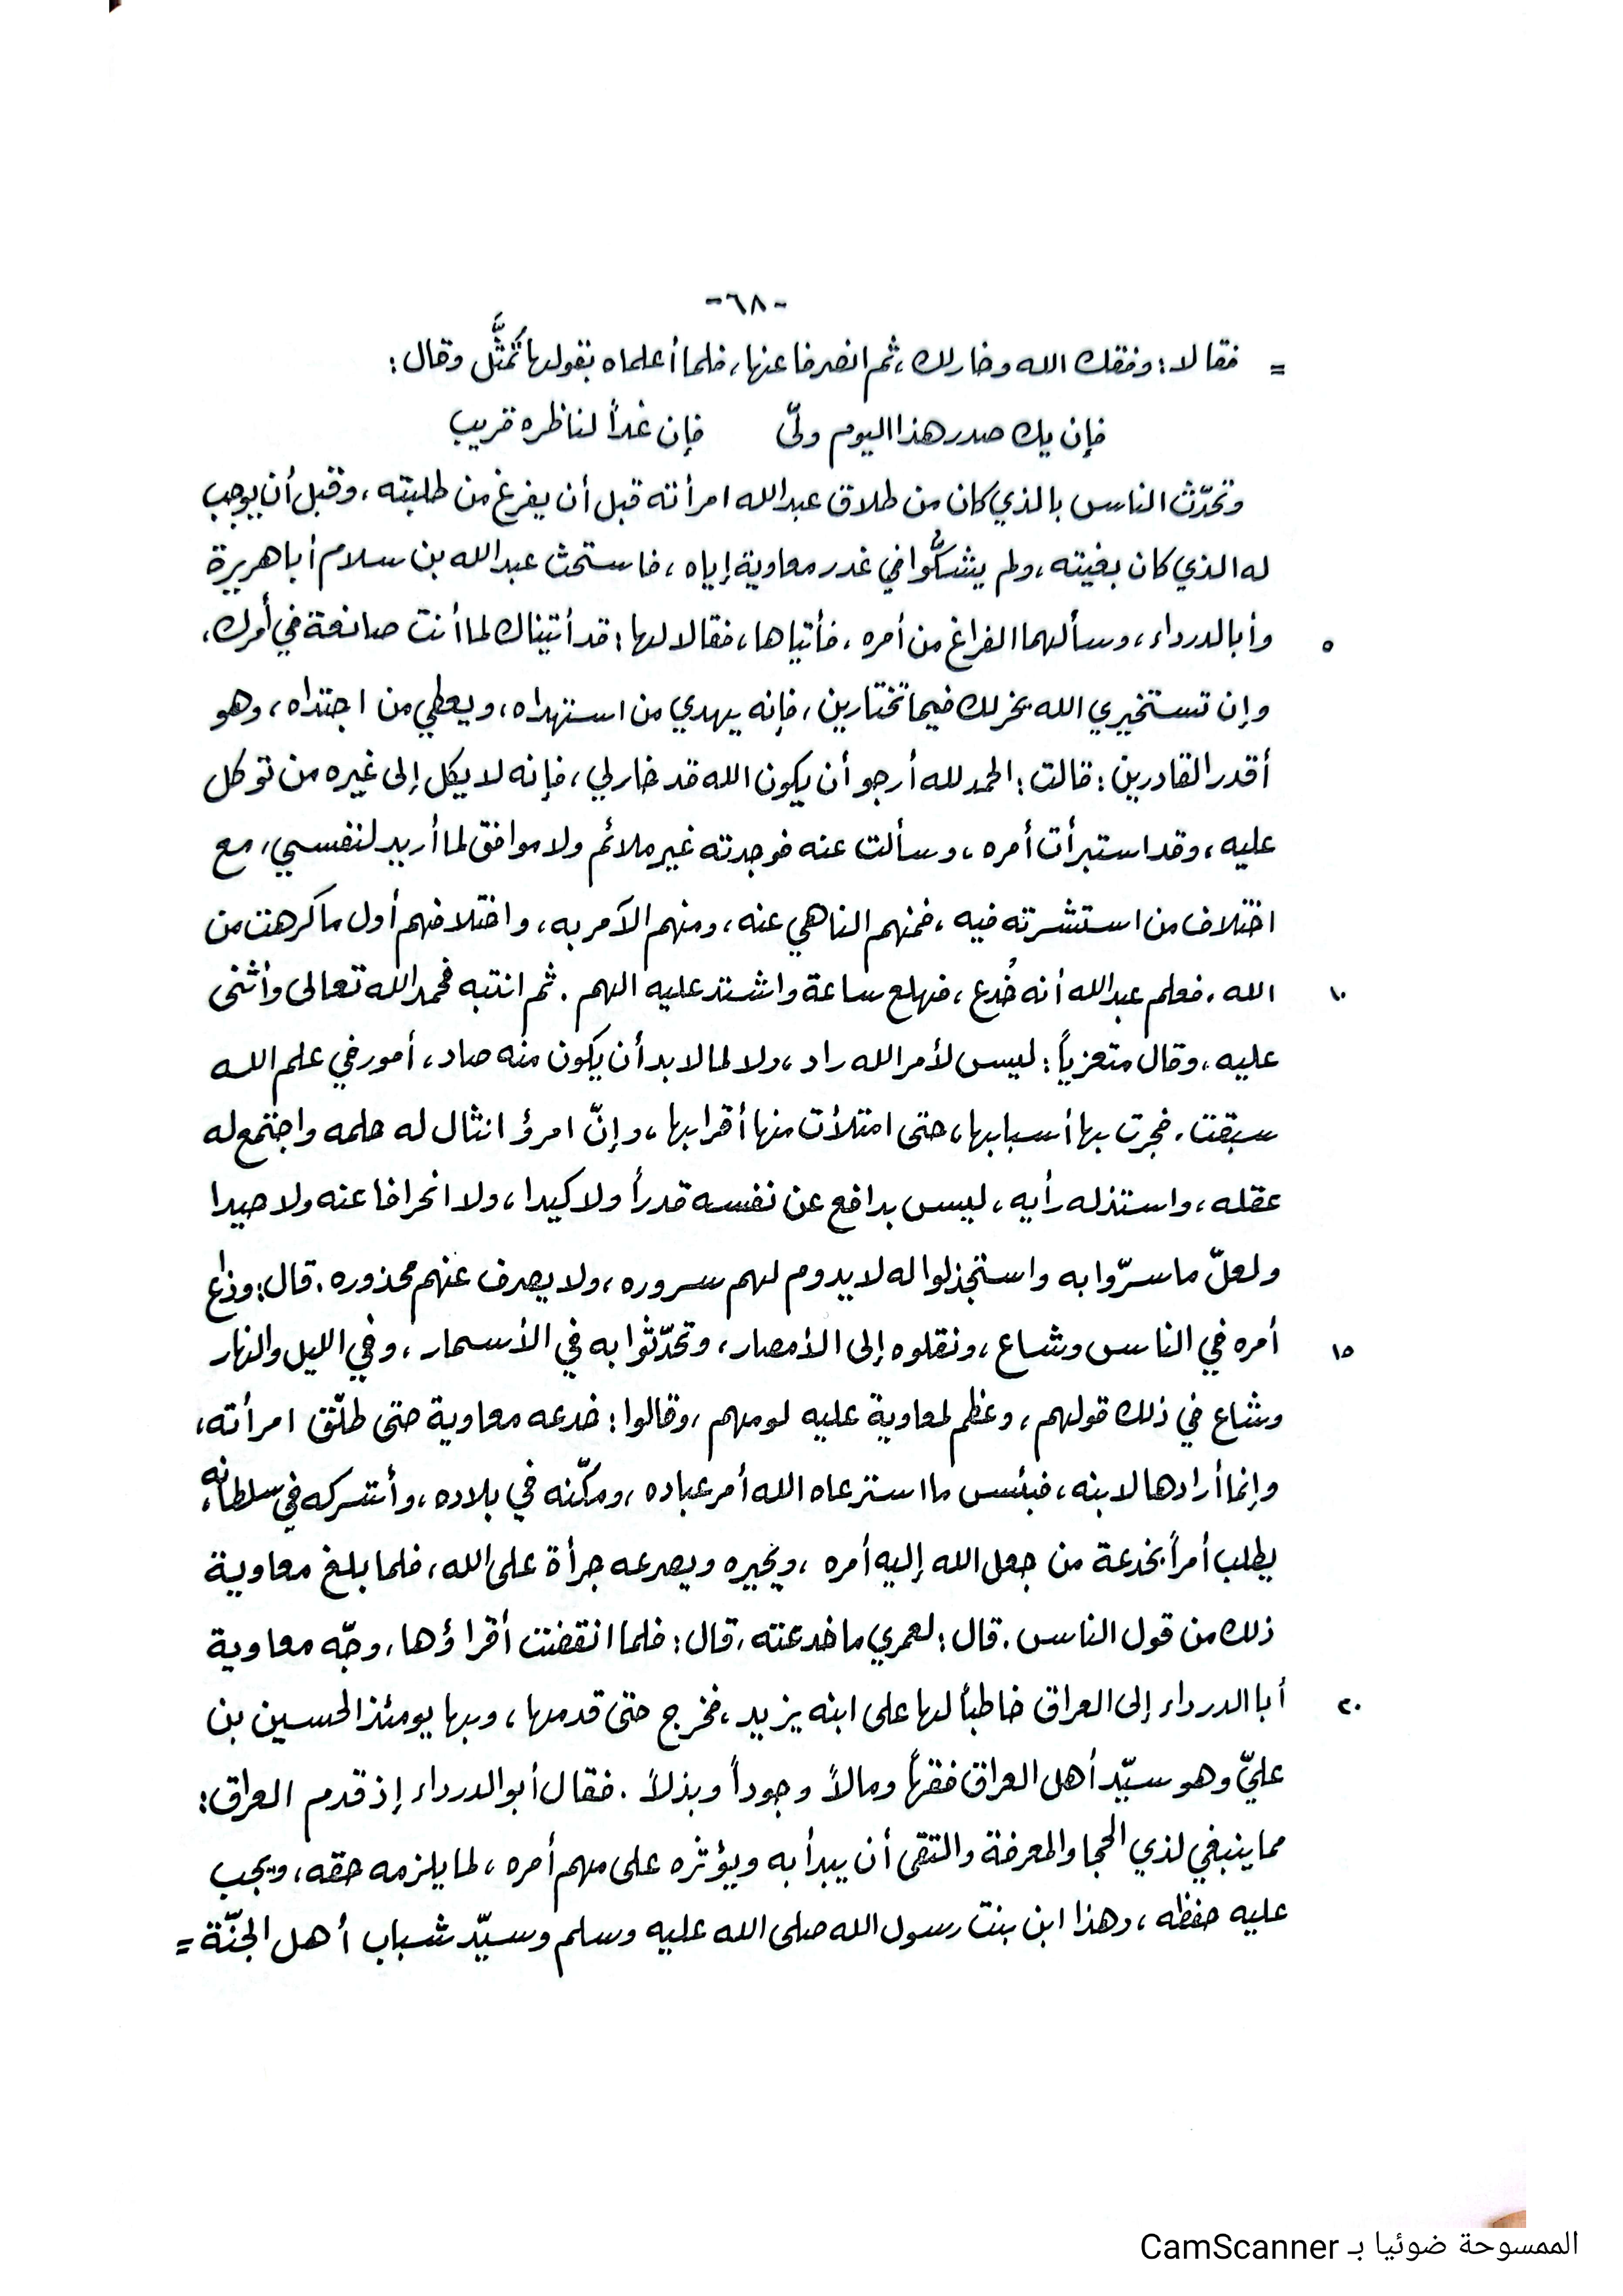 -٦٨-
= فقالا: وفقك الله وخار لك، ثم انصرفا عنها، فلما أعلماه بقولها تَمثَّل وقال:
فإن يك صدر هذا اليوم ولّى فإن غداً لناظره قريب
وتحدّث الناس بالذي كان من طلاق عبدالله امرأته قبل أن يفرغ من طلبته، وقبل أن يوجب
له الذي كان بغيته، ولم يشكُّوا في غدر معاوية إياه، فاستحث عبدالله بن سلام أبا هريرة
٥ وأبا الدرداء، وسألهما الفراغ من أمره، فأتياها، فقالا لها: قد أتيناك لما أنت صانعة في أمرك،
وإن تستخيري الله يخر لك فيما تختارين، فإنه يهدي من استهداه، ويعطي من اجتداه، وهو
أقدر القادرين: قالت: الحمد لله أرجو أن يكون الله قد خار لي، فإنه لا يكل إلى غيره من توكل
عليه، وقد استبرأت أمره، وسألت عنه فوجدته غير ملائم ولا موافق لما أريد لنفسي، مع
اختلاف من استشرته فيه، فمنهم الناهي عنه، ومنهم الآمر به، واختلافهم أول ما كرهت من
١٠ الله. فعلم عبدالله أنه خُدع، فهلع ساعة واشتد عليه الهم. ثم انتبه فحمد الله تعالى وأثنى
عليه، وقال متعزياً: ليس لأمر الله راد، ولا لما لابد أن يكون منه صاد، أمور في علم الله
سبقت. فجرت بها أسبابها، حتى امتلأت منها أقرابها، وإنّ امرؤ انثال له حلمه واجتمع له
عقله، واستذله رأيه، ليس بدافع عن نفسه قدراً ولا كيدا، ولا انحرافا عنه ولا حيدا
ولعلّ ما سرّوا به واستجذلوا له لا يدوم لهم سروره، ولا يصرف عنهم محذوره. قال: وذاع
١٥ أمره في الناس وشاع، ونقلوه إلى الأمصار، وتحدّثوا به في الأسمار، وفي الليل والنهار
وشاع في ذلك قولهم، وعظم لمعاوية عليه لومهم، وقالوا: خدعه معاوية حتى طلّق امرأته،
وإنما أرادها لابنه، فبئس ما استرعاه الله أمر عباده، ومكّنه في بلاده، وأشركه في سلطانه،
يطلب أمراً بخدعة من جعل الله إليه أمره، ويحيره ويصرعه جرأة على الله، فلما بلغ معاوية
ذلك من قول الناس. قال: لعمري ما خدعته. قال: فلما انقضت أقراؤها، وجّه معاوية
٢٠ أبا الدرداء إلى العراق خاطباً لها على ابنه يزيد، فخرج حتى قدمها، وبها يومئذ الحسين بن
عليّ وهو سيّد أهل العراق فقهاً ومالاً وجوداً وبذلاً. فقال أبو الدرداء إذ قدم العراق:
مما ينبغي لذي الحجا والمعرفة والتقى أن يبدأ به ويؤثره على مهم أمره، لما يلزمه حقه، ويجب
عليه حفظه، وهذا ابن بنت رسول الله صلى الله عليه وسلم وسيّد شباب أهل الجنّة =
الممسوحة ضوئيا بـ CamScanner